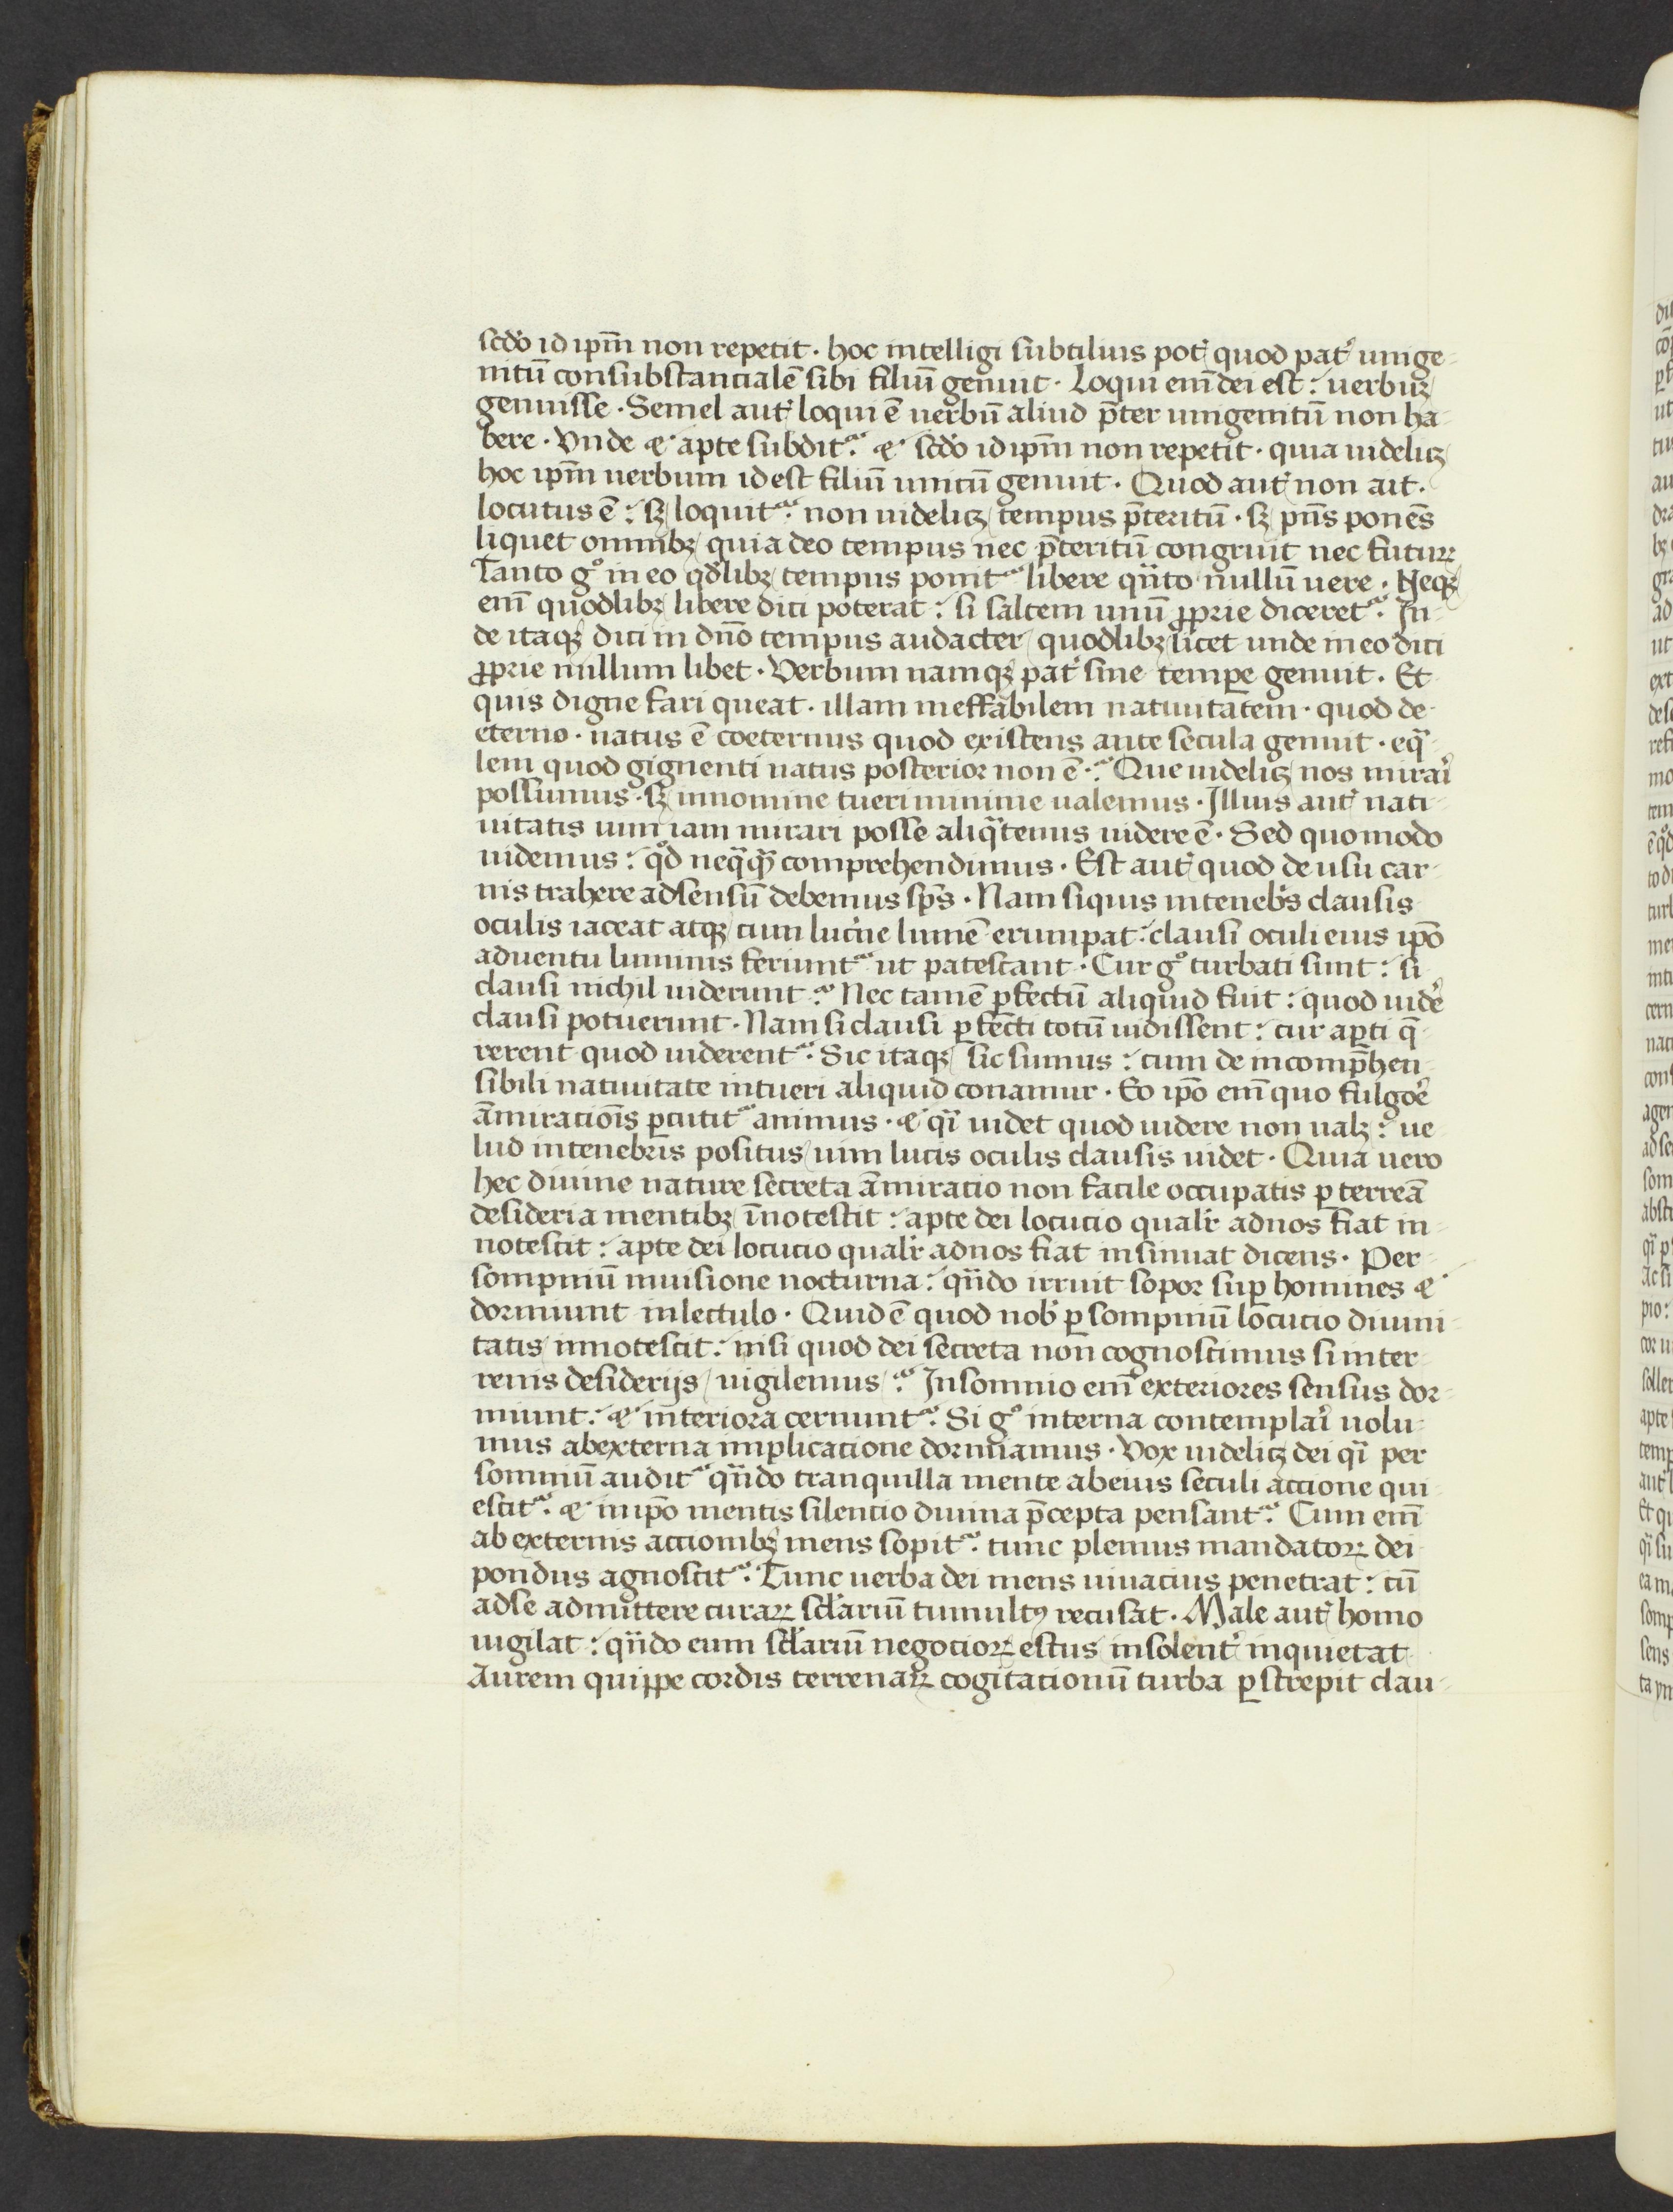 scďo id ipm̄ non repetit · hoc intelligi subtilius pot̾ quod pat̾ unige-
nitū consubstancialē sibi filiū genuit · Loqui em̄ dei est : uerbuꝫ
genuisse · Semel aut̾ loqui ē uerbū aliud p̄ter unigenitū non ha-
bere · Vnde ⁊ apte subdit᷑ : ⁊ scďo id ipm̄ non repetit · quia uidelicꝫ
hoc ipm̄ uerbum id est filiū unicū genuit · Quod aut̾ non ait ·
locutus ē : sꝫ loquit᷑ : non uidelicꝫ tempus p̄teritū · sꝫ pn̄s ponēs
liquet omnibꝫ quia deo tempus nec p̄teritū congruit nec futuꝝ
Tanto gͦ in eo qđlibꝫ tempus ponit᷑ libere qͣnto nullū uere · Neqꝫ
em̄ quodlibꝫ libere dici poterat : si saltem unū ꝓprie diceret᷑ : In-
de itaqꝫ dici in dn̄o tempus audacter quodlibꝫ licet unde in eo dici
ꝓprie nullum libet · Verbum namqꝫ pat̾ sine temꝑe genuit · Et
quis digne fari queat · illam ineffabilem natiuitatem · quod de
eterno · natus ē coeternus quod existens ante secula genuit · eqͣ-
lem quod gignenti natus posterior non ē : Que uidelicꝫ nos mirar̾
possumus · sꝫ innomine tueri minime ualemus · Illius aut̾ nati-
uitatis uim iam mirari posse aliqͣtenus uidere ē · Sed quomodo
uidemus : qͦd neqͣqͣꝫ comprehendimus · Est aut̾ quod de usu car-
nis trahere ad sensū debemus sp̄s · Nam siquis in teneb̾s clausis
oculis iaceat atqꝫ cum luc̾ne lumē erumpat : clausi oculi eius ip̄o
aduentu luminis feriunt᷑ ut patescant · Cur gͦ turbati sunt : si
clausi nichil uiderunt : Nec tamē ꝑfectū aliquid fuit : quod uider̾
clausi potuerunt · Nam si clausi ꝑfecti totū uidissent : cur aꝑti q̄-
rerent quod uiderent᷑ : Sic itaqꝫ sic sumus : cum de incomp̄hen-
sibili natiuitate intueri aliquid conamur · Eo ip̄o em̄ quo fulgor̾
ām̄iracōis ꝑcutit᷑ animus · ⁊ qͣi uidet quod uidere non ualꝫ : ue-
lud in tenebris positus uim lucis oculis clausis uidet · Quia uero
hec diuine nature secreta āmiracio non facile occupatis ꝑ terreā
desideria mentibꝫ īnotescit : apte dei locucio qualr̾ ad nos fiat in-
notescit : apte dei locucio qualr̾ ad nos fiat insinuat dicens · Per
sompniū in uisione nocturna : qͣndo irruit sopor suꝑ homines ⁊
dormiunt in lectulo · Quid ē quod nob̾ ꝑ sompniū locucio diuini-
tatis innotescit : nisi quod dei secreta non cognoscimus si in ter-
renis desiderijs uigilemus : In somnio em̄ exteriores sensus dor-
miunt : ⁊ interiora cernunt᷑ : Si gͦ interna contemplar̾ uolu-
mus ab externa implicatione dormiamus · Vox uidelicꝫ dei qͣi per
somniū audit᷑ qͣndo tranquilla mente ab eius seculi accione qui-
escit᷑ : ⁊ in ip̄o mentis silencio diuina p̄cepta pensant᷑ : Cum em̄
ab externis accionibꝫ mens sopit᷑ : tunc plenius mandatoꝝ dei
pondus agnoscit᷑ : Tunc uerba dei mens uiuacius penetrat : cū
ad se admittere curaꝝ sc̄lariū tumultꝰ recusat · Male aut̾ homo
uigilat : qͣndo eum sc̄lariū negocioꝝ estus insolent̾ inquietat
Aurem quippe cordis terrenaꝝ cogitacionū turba ꝑstrepit clau-